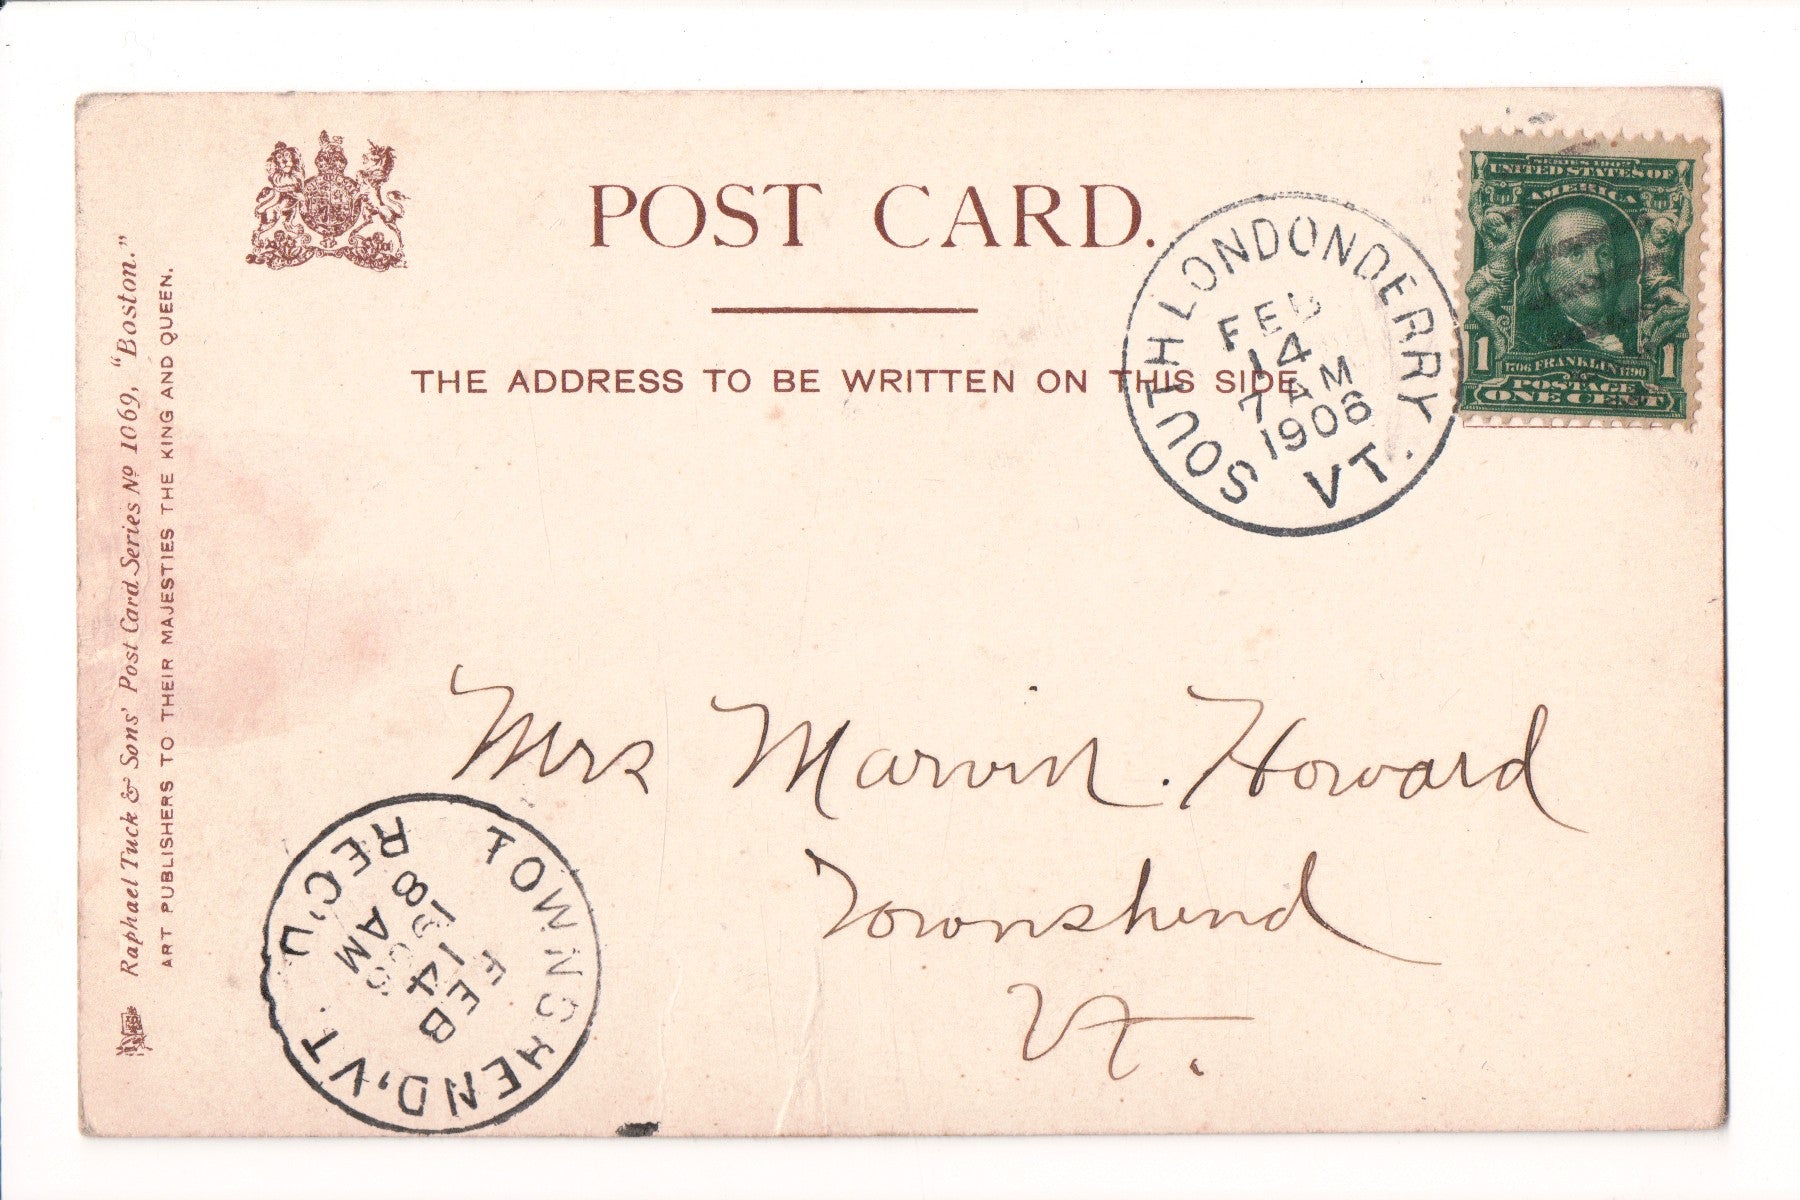 POST CARD.
THE ADDRESS TO BE WRITTEN ON THIS SIDE
SOUTH LONDONDERRY VT.
FEB
14
7 AM
1906
SERIES 1902
UNITED STATES OF
AMERICA
1 1706 FRANKLIN 1790 1
POSTAGE
ONE CENT
Raphael Tuck & Sons' Post Card Series No 1069, "Boston."
ART PUBLISHERS TO THEIR MAJESTIES THE KING AND QUEEN.
Mrs Marvin. Howard
Townshend
Vt.
TOWNSHEND, VT. REC'D
FEB
14
1906
8 AM